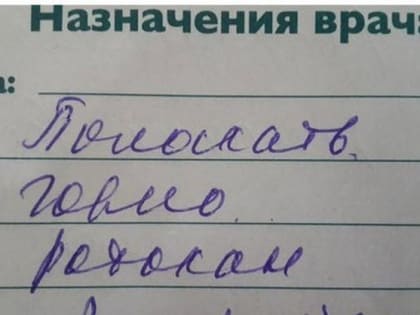 Назначения врача
а:
Полоскать
горло
ротокан